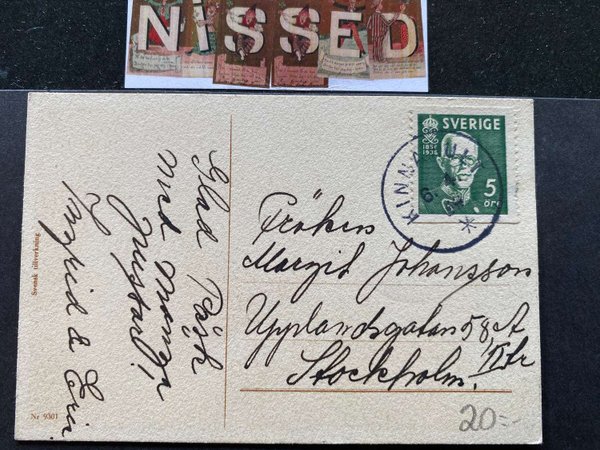 NiSSED
Svensk tillverkning
Nr 9301
Glad Påsk
med många
Ingrid & Eric
SVERIGE
1858
1938
5
öre
KINNA
6
Fröken
Margit Johansson
Upplandsgatan 58 A
II tr
Stockholm.
20:-